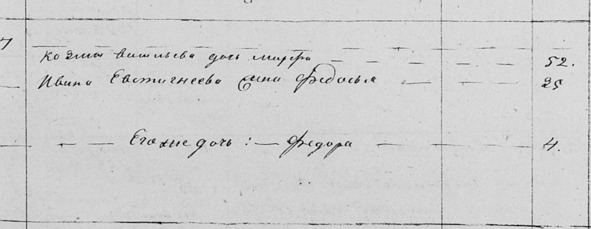 7
Козмы васильева дочь марфа 52.
Ивана Евстигнеева Феодосья 25
Егоже дочь: — федора 4.